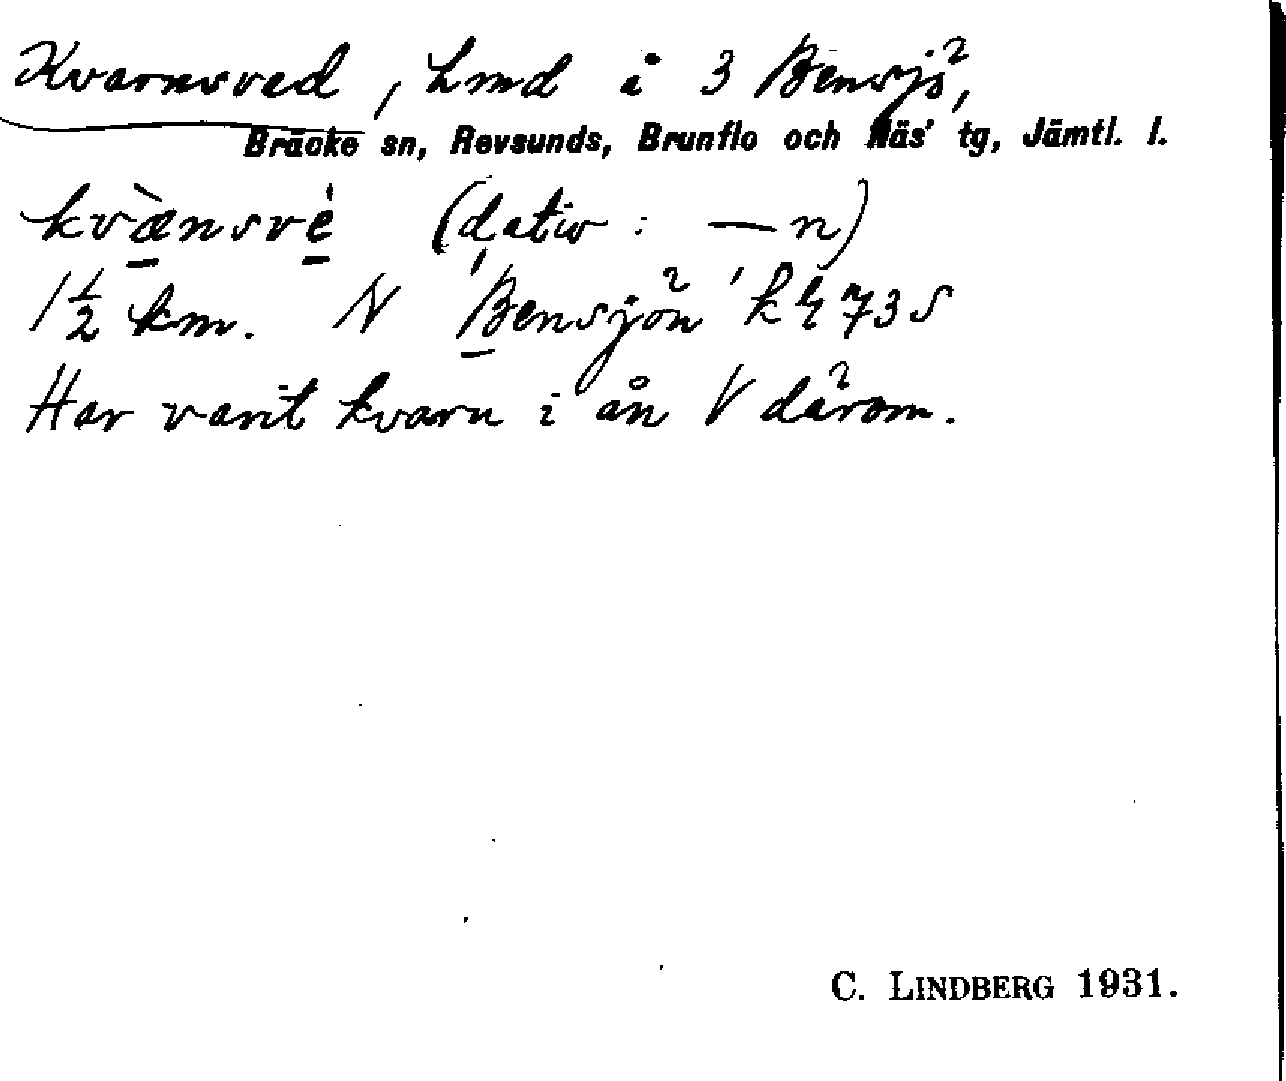 Kvarnsved, Lmd i 3 Bensjö,
Bräcke sn, Revsunds, Brunflo och Näs' tg, Jämtl. l.
kvænsve (dativ: — n)
1½ km. N Bensjön 73 S
Har varit kvarn i ån V därom.
C. LINDBERG 1931.